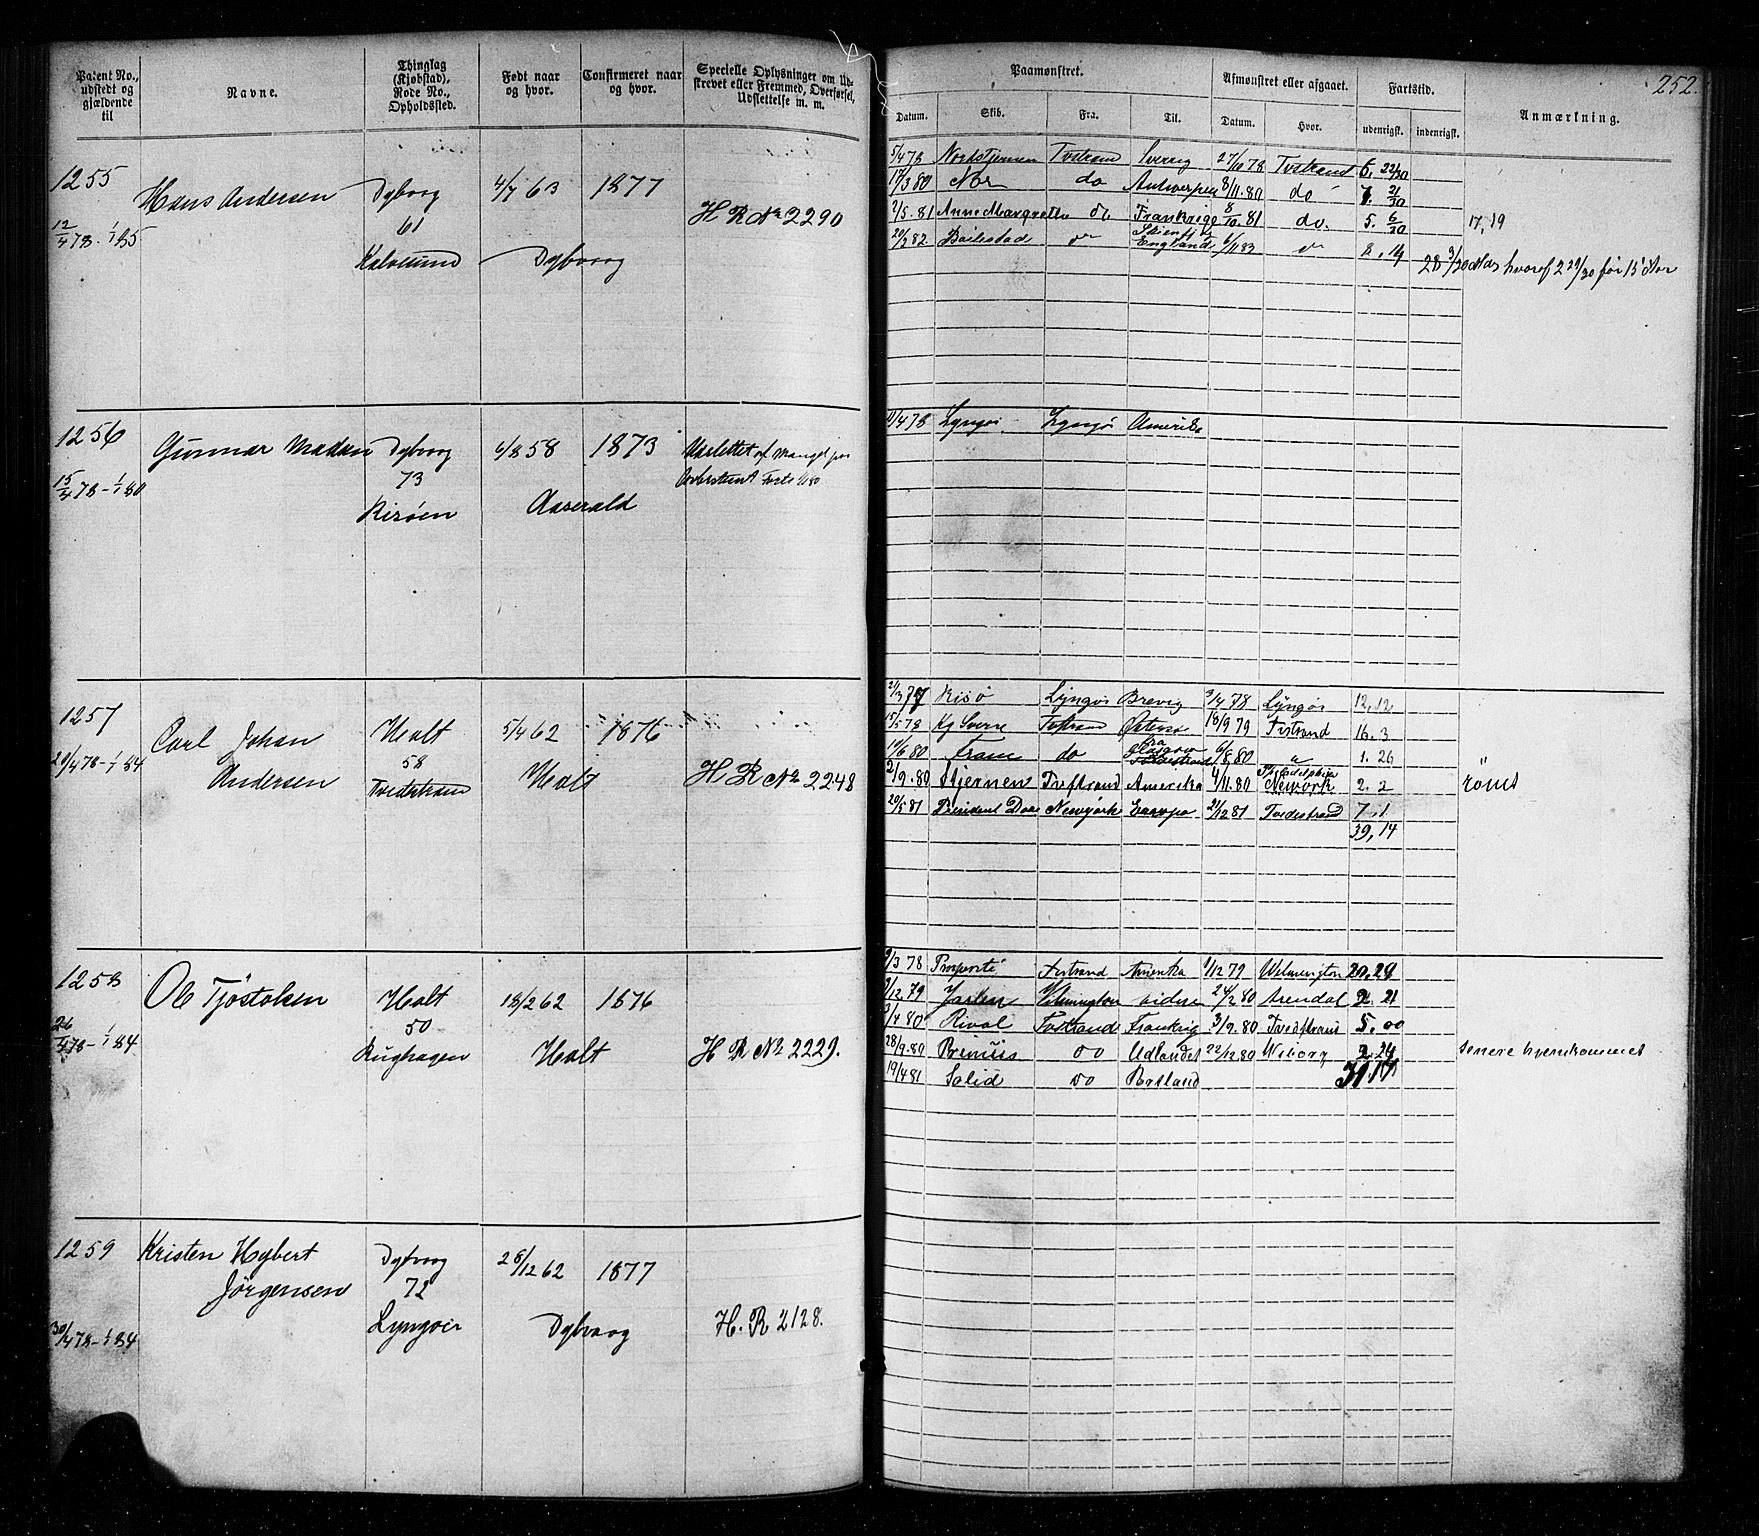 252.
Patent No., udstedt og gjældende til
Navne.
Thinglag (Kjøbstad), Rode No., Opholdssted.
Født naar og hvor.
Confirmeret naar og hvor.
Specielle Oplysninger om Udstrevet eller Fremmed, Overførsel, Udslettelse m. m.
Paamønstret.
Afmønstret eller afgaaet.
Fartstid.
Anmærkning.
Datum. Skib. Fra. Til. Datum. Hvor. udenrigsk. indenrigsk.
1255 Hans Andersen Dybvaag 4/7 63 1877
61
12/4 78 - 1/1 85 Kalvesund Dybvaag H R No 2290
5/4 78 Nordstjernen Tvstrand Sverrig 27/10 78 Tvstrand 6. 22/30
17/3 80 do Antwerpen 8/11.80 do 7. 21/30
2/5.81 Anne Margrethe do Frankrige 8/10.81 do. 5. 6/30 17,19
20/2 82 England 6/11 83 8. 14
28 3/30 Mds hvoraf 2 29/30 før 15 Aar
1256 Gunnar Madsen Dybvaag 4/8 58 1873 Udslettet af Mangel paa
73
15/4 78 - 1/1 80 Risøen Aaserald
11/4 78 Lyngør Lyngør Amerika
1257 Carl Johan Andersen Holt 5/4 62 1876
58
29/4 78 - 1/1 84 Tvedestrand Holt H R No 2248
21/3 77 Risø Lyngør Brevig 3/4 78 Lyngør 12,12
15/5 78 Kg Sverre Tvstrand Østersø 18/9 79 Tvstrand 16. 3
14/6 80 Fram do fra Glasgow 6/8.80 " 1. 26
2/9.80 Stjernen Tvedstrand Amerika 4/11.80 Philadelphia Newyork 2. 2 rømt
20/5 81 President Newyork Europa 21/12 81 Tvedestrand 7.1
39,14
1258 Ole Tjøstolsen Holt 18/2 62 1876
50
26/4 78 - 1/1 84 Rughagen Holt H R No 2229.
9/3 78 Prosperité Tvstrand Amerika 1/12 79 Wilmington 20.29
2/12.79 Wilmington videre 24/2 80 Arendal 2. 21
3/4 80 Rival Tvstrand Frankrig 3/9.80 Tvedstrand 5.00
28/9.80 Primus do Udlandet 22/12 80 Wiborg 2.24 senere hjemkommet
19/4 81 Solid do Portland
1259 Kristen Hybert Jørgensen Dybvaag 28/12 62 1877
72
30/4 78 - 1/1 84 Lyngøer Dybvaag H. R 2128.